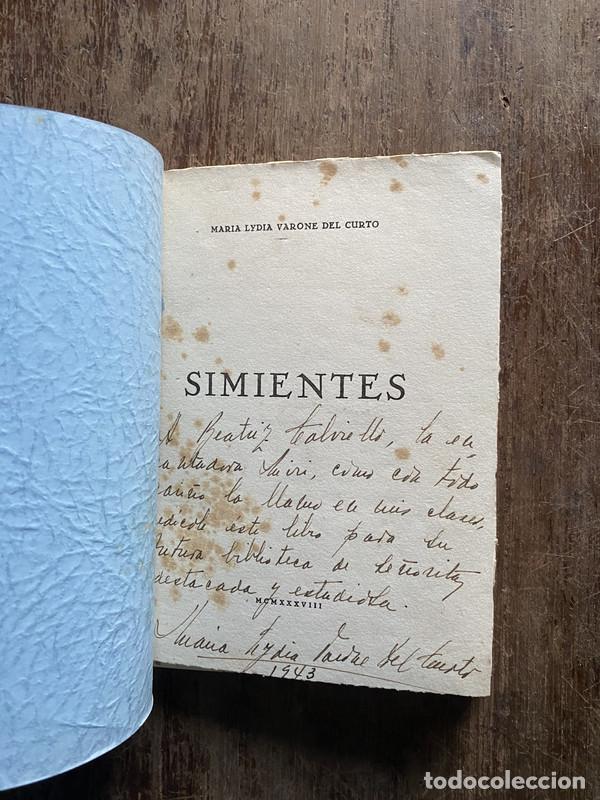 MARIA LYDIA VARONE DEL CURTO
SIMIENTES
A Beatriz Calviello, la en
cantadora Luiri, como con todo
cariño la llamo en mis clases,
dedícole este libro para su
futura biblioteca de señorita,
destacada y estudiosa.
MCMXXXVIII
Maria Lydia Varone del Curto
1943
todocoleccion